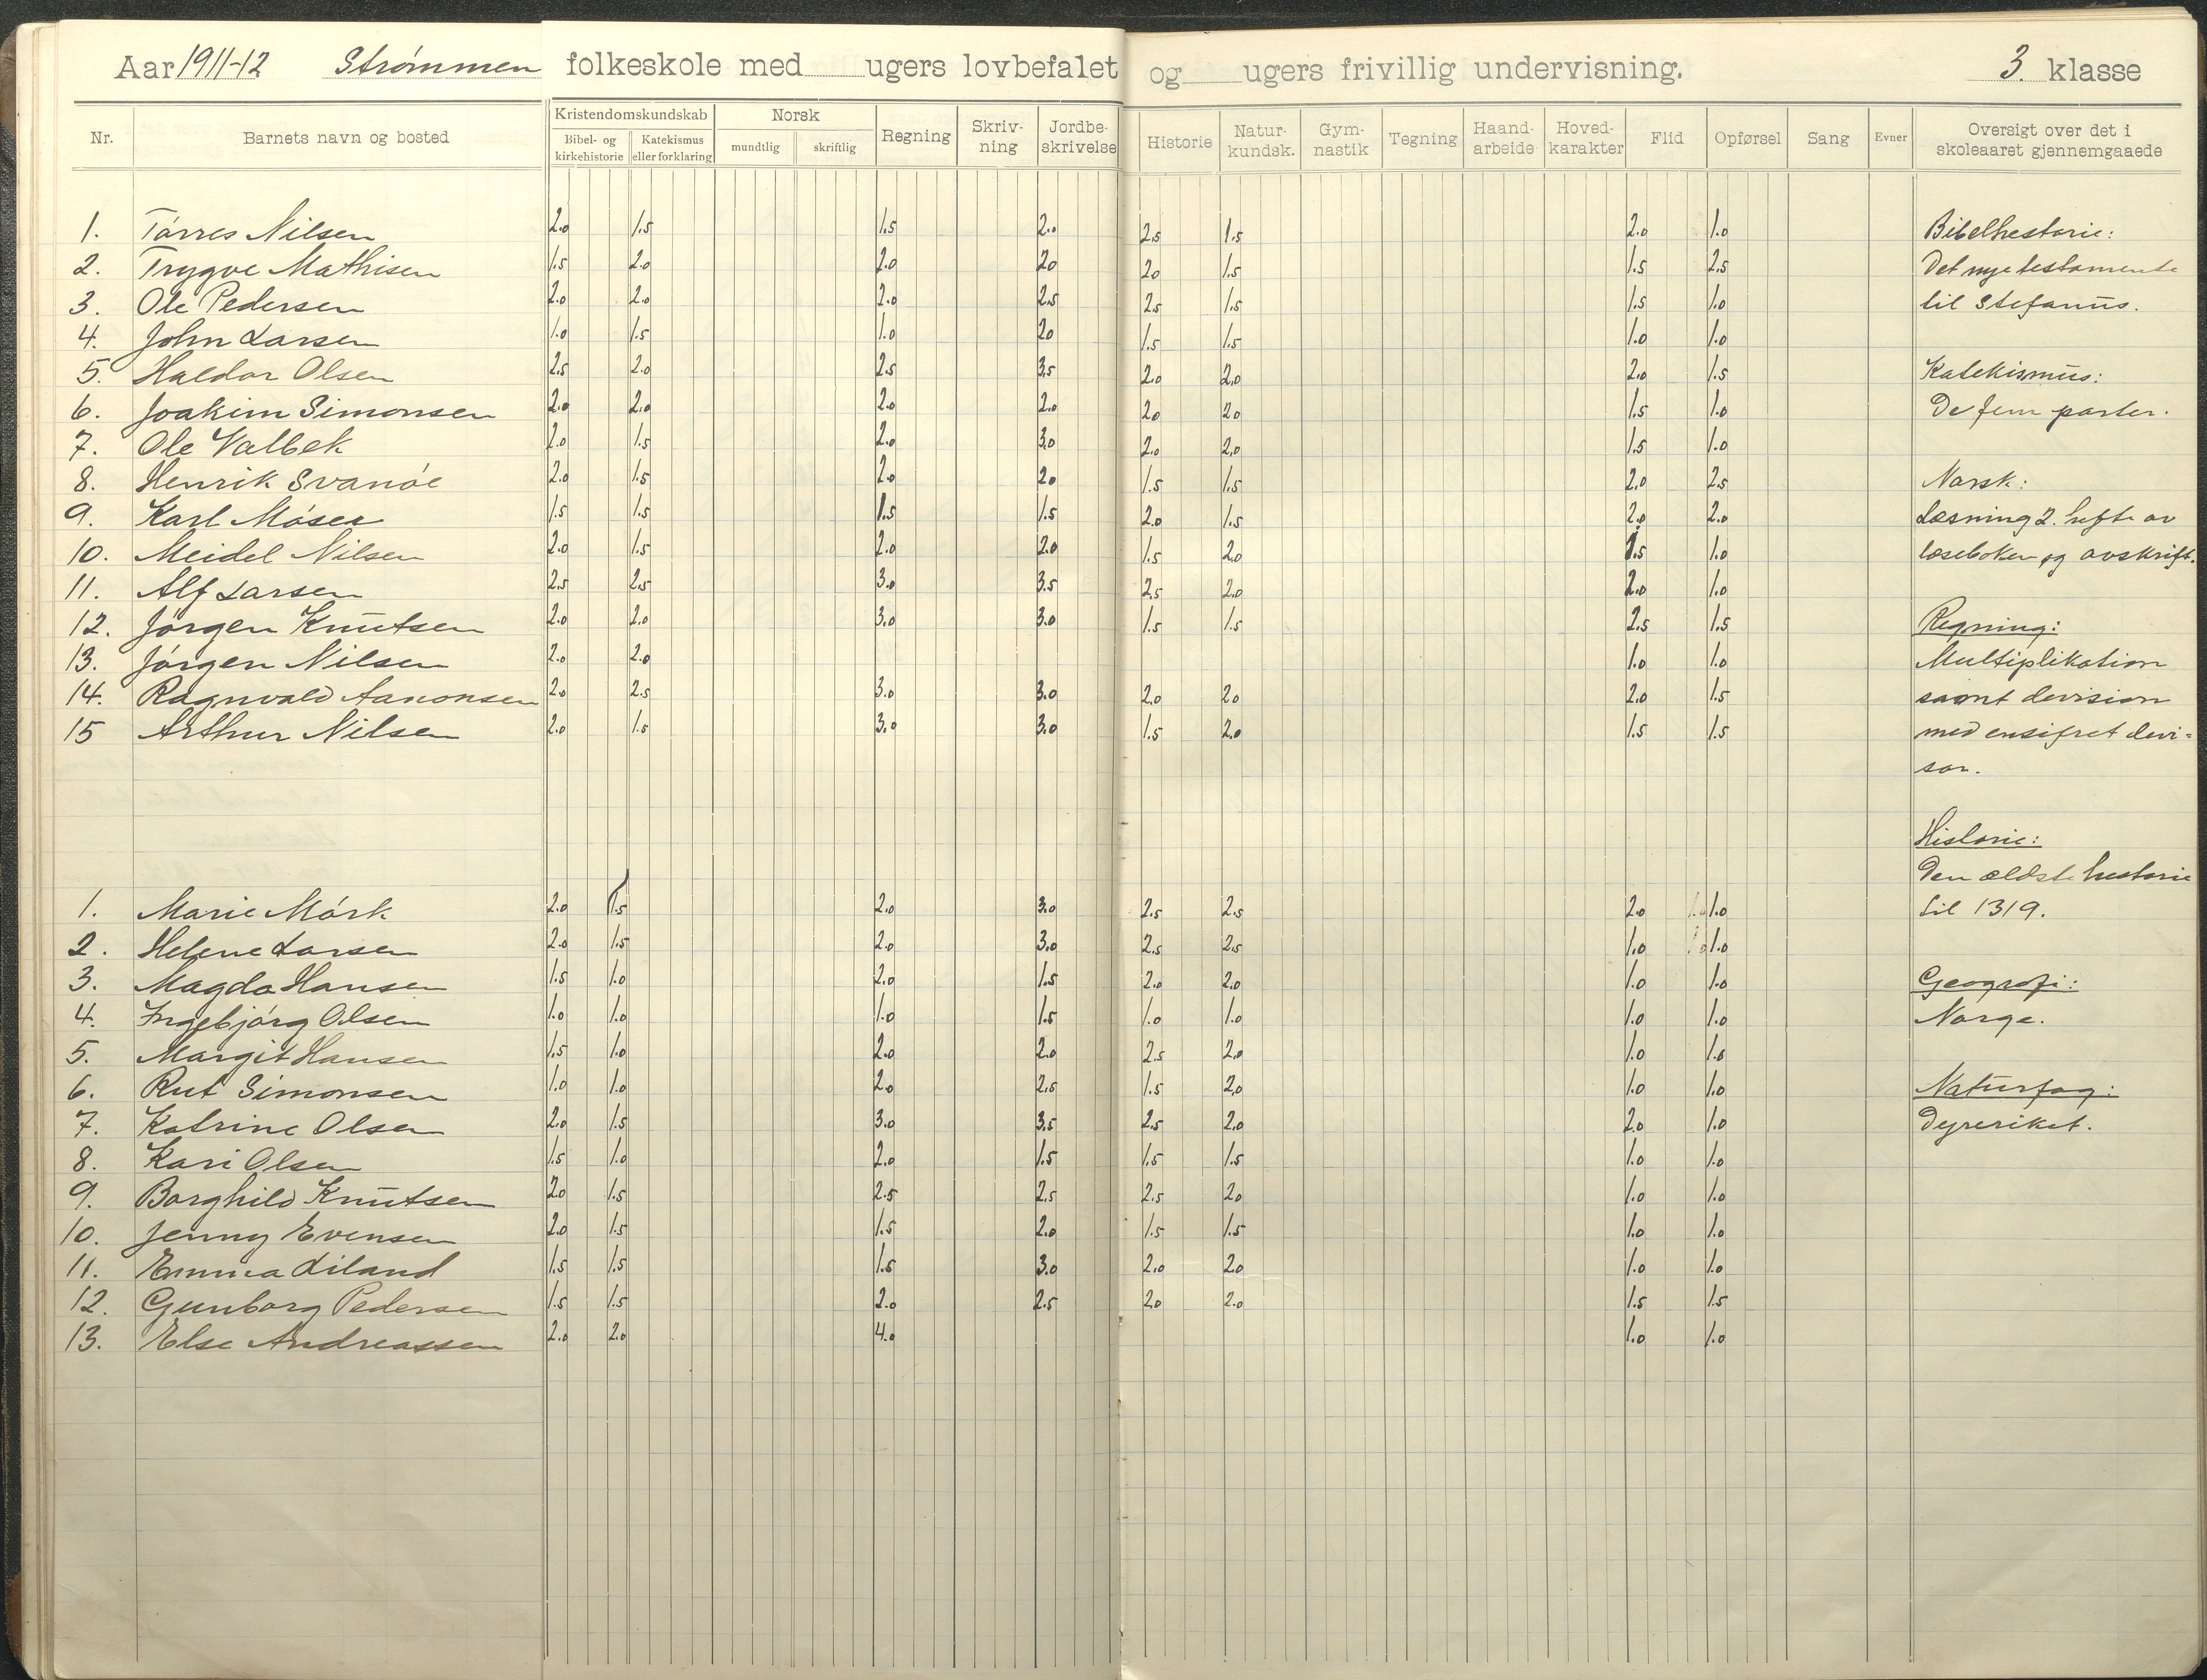 Aar 1911-12 Strømmen folkeskole med ugers lovbefalet og ugers frivillig undervisning. 3. klasse
Nr. Barnets navn og bosted Kristendomskundskab Bibel- og kirkehistorie Katekismus eller forklaring Norsk mundtlig skriftlig Regning Skriv-ning Jordbe-skrivelse Historie Natur-kundsk. Gym-nastik Tegning Haand-arbeide Hoved-karakter Flid Opførsel Sang Evner Oversigt over det i skoleaaret gjennemgaaede
1. Tórres Nilsen 2.0 1.5 1.5 2.0 2.5 1.5 2.0 1.0 Bibelhestorie:
2. Trygve Mathisen 1.5 2.0 2.0 2.0 2.0 1.5 1.5 2.5 Det nye testamente
3. Ole Pedersen 2.0 2.0 2.0 2.5 2.5 1.5 1.5 1.0 til Stefanus.
4. John Larsen 1.0 1.5 1.0 2.0 1.5 1.5 1.0 1.0
5. Haldor Olsen 2.5 2.0 2.5 3.5 2.0 2.0 2.0 1.5 Katekismus:
6. Joakim Simonsen 2.0 2.0 2.0 2.0 2.0 2.0 1.5 1.0 De fem parter.
7. Ole Valbek 2.0 1.5 2.0 3.0 2.0 2.0 1.5 1.0
8. Henrik Svanóe 2.0 1.5 2.0 2.0 1.5 1.5 2.0 2.5 Norsk:
9. Karl Móser 1.5 1.5 1.5 1.5 2.0 1.5 2.0 2.0 Læsning 2. hefte av
10. Meidel Nilsen 2.0 1.5 2.0 2.0 1.5 2.0 1.5 1.0 læseboken og avskrift.
11. Alf Larsen 2.5 2.5 3.0 3.5 2.5 2.0 2.0 1.0
12. Jórgen Knutsen 2.0 2.0 3.0 3.0 1.5 1.5 2.5 1.5 Regning:
13. Jórgen Nilsen 2.0 2.0 1.0 1.0 Multiplikation
14. Ragnvald Aanonsen 2.0 2.5 3.0 3.0 2.0 2.0 2.0 1.5 samt devision
15 Arthur Nilsen 2.0 1.5 3.0 3.0 1.5 2.0 1.5 1.5 med ensifret devi=
sor.
Historie:
Den ældste hestorie
1. Marie Mórk 2.0 1.5 2.0 3.0 2.5 2.5 2.0 1.0 til 1319.
2. Helene Larsen 2.0 1.5 2.0 3.0 2.5 2.5 1.0 1.0
3. Magda Hansen 1.5 1.0 2.0 1.5 2.0 2.0 1.0 1.0 Geografi:
4. Ingebjórg Olsen 1.0 1.0 1.0 1.5 1.0 1.0 1.0 1.0 Norge.
5. Margit Hansen 1.5 1.0 2.0 2.0 2.5 2.0 1.0 1.0
6. Rut Simonsen 1.0 1.0 2.0 2.5 1.5 2.0 1.0 1.0 Naturfag:
7. Katrine Olsen 2.0 1.5 3.0 3.5 2.5 2.0 2.0 1.0 Dyreriket.
8. Kari Olsen 1.5 1.0 2.0 1.5 1.5 1.5 1.0 1.0
9. Borghild Knutsen 2.0 1.5 2.5 2.5 2.5 2.0 1.0 1.0
10. Jenny Evensen 2.0 1.5 1.5 2.0 1.5 1.5 1.0 1.0
11. Emma Liland 1.5 1.5 1.5 3.0 2.0 2.0 1.0 1.0
12. Gunborg Pedersen 1.5 1.5 2.0 2.5 2.0 2.0 1.5 1.5
13. Else Andreassen 2.0 2.0 4.0 1.0 1.0